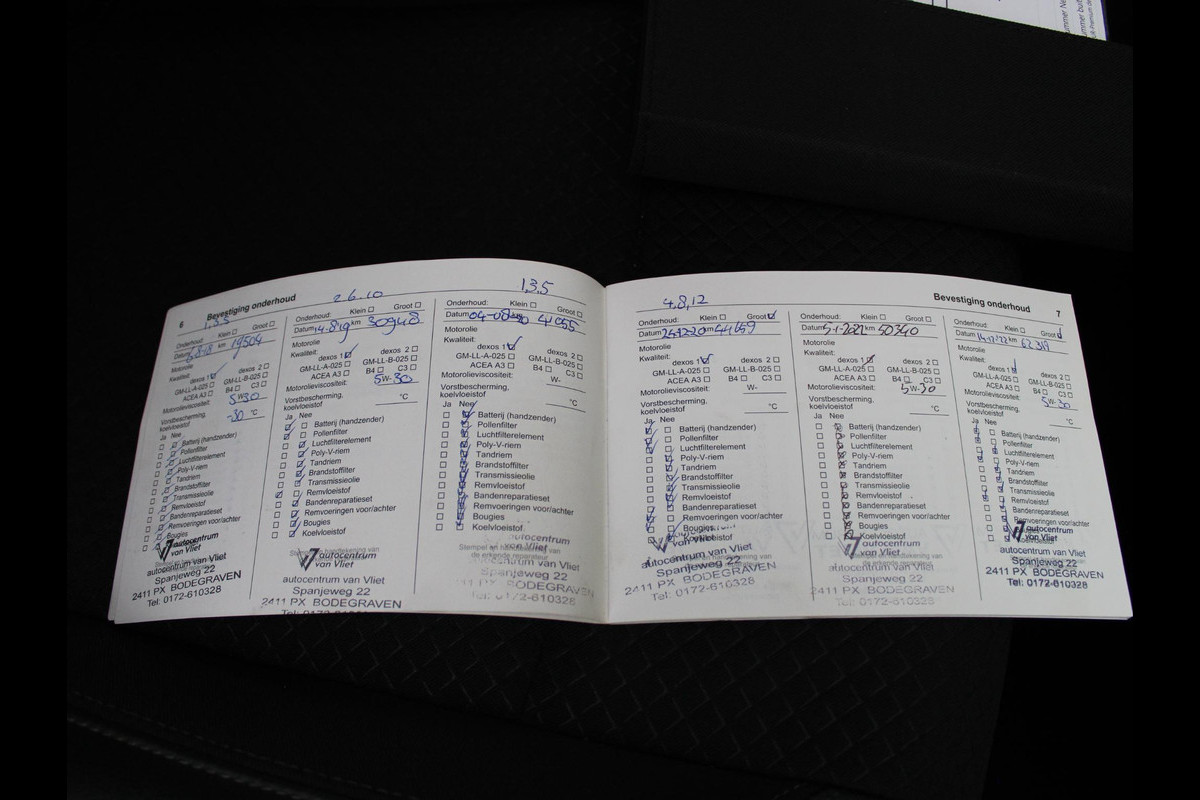 6 Bevestiging onderhoud
1,3,5
Onderhoud: Klein Groot
Datum km 19504
Motorolie
Kwaliteit: dexos 1 dexos 2
GM-LL-A-025 GM-LL-B-025
ACEA A3 B4 C3
Motorolieviscositeit: 5W-30
Vorstbescherming, koelvloeistof -30 °C
Ja Nee
Batterij (handzender)
Pollenfilter
Luchtfilterelement
Poly-V-riem
Tandriem
Brandstoffilter
Transmissieolie
Remvloeistof
Bandenreparatieset
Remvoeringen voor/achter
Bougies
autocentrum
van Vliet
autocentrum van Vliet
Spanjeweg 22
2411 PX BODEGRAVEN
Tel: 0172-610328
2.6.10
Onderhoud: Klein Groot
Datum 14-8-19 km 30948
Motorolie
Kwaliteit: dexos 1 dexos 2
GM-LL-A-025 GM-LL-B-025
ACEA A3 B4 C3
Motorolieviscositeit: 5W-30
Vorstbescherming,
koelvloeistof °C
Ja Nee
Batterij (handzender)
Pollenfilter
Luchtfilterelement
Poly-V-riem
Tandriem
Brandstoffilter
Transmissieolie
Remvloeistof
Bandenreparatieset
Remvoeringen voor/achter
Bougies
Koelvloeistof
autocentrum
van Vliet
autocentrum van Vliet
Spanjeweg 22
2411 PX BODEGRAVEN
Tel: 0172-610328
1,3,5
Onderhoud: Klein Groot
Datum 04-08-2020 41055
Motorolie
Kwaliteit: dexos 1 dexos 2
GM-LL-A-025 GM-LL-B-025
ACEA A3 B4 C3
Motorolieviscositeit: W-
Vorstbescherming,
koelvloeistof °C
Ja Nee
Batterij (handzender)
Pollenfilter
Luchtfilterelement
Poly-V-riem
Tandriem
Brandstoffilter
Transmissieolie
Remvloeistof
Bandenreparatieset
Remvoeringen voor/achter
Bougies
Koelvloeistof
autocentrum
van Vliet
Stempel en handtekening van
de erkende reparateur
autocentrum van Vliet
Spanjeweg 22
2411 PX BODEGRAVEN
Tel: 0172-610328
Bevestiging onderhoud 7
4,8,12
Onderhoud: Klein Groot
Datum 24-12-20 km 44659
Motorolie
Kwaliteit: dexos 1 dexos 2
GM-LL-A-025 GM-LL-B-025
ACEA A3 B4 C3
Motorolieviscositeit: W-
Vorstbescherming,
koelvloeistof °C
Ja Nee
Batterij (handzender)
Pollenfilter
Luchtfilterelement
Poly-V-riem
Tandriem
Brandstoffilter
Transmissieolie
Remvloeistof
Bandenreparatieset
Remvoeringen voor/achter
Bougies
Koelvloeistof
autocentrum van Vliet
Spanjeweg 22
2411 PX BODEGRAVEN
Tel: 0172-610328
Onderhoud: Klein Groot
Datum 5-1-2022 km 50340
Motorolie
Kwaliteit: dexos 1 dexos 2
GM-LL-A-025 GM-LL-B-025
ACEA A3 B4 C3
Motorolieviscositeit: 5W-30
Vorstbescherming,
koelvloeistof °C
Ja Nee
Batterij (handzender)
Pollenfilter
Luchtfilterelement
Poly-V-riem
Tandriem
Brandstoffilter
Transmissieolie
Remvloeistof
Bandenreparatieset
Remvoeringen voor/achter
Bougies
Koelvloeistof
autocentrum
van Vliet
autocentrum van Vliet
Spanjeweg 22
2411 PX BODEGRAVEN
Tel: 0172-610328
Onderhoud: Klein Groot
Datum km
Motorolie
Kwaliteit: dexos 1 dexos 2
GM-LL-A-025 GM-LL-B-025
ACEA A3 B4 C3
Motorolieviscositeit: 5W-30
Vorstbescherming,
koelvloeistof °C
Ja Nee
Batterij (handzender)
Pollenfilter
Luchtfilterelement
Poly-V-riem
Tandriem
Brandstoffilter
Transmissieolie
Remvloeistof
Bandenreparatieset
Remvoeringen voor/achter
Bougies
autocentrum
van Vliet
autocentrum van Vliet
Spanjeweg 22
2411 PX BODEGRAVEN
Tel: 0172-610328